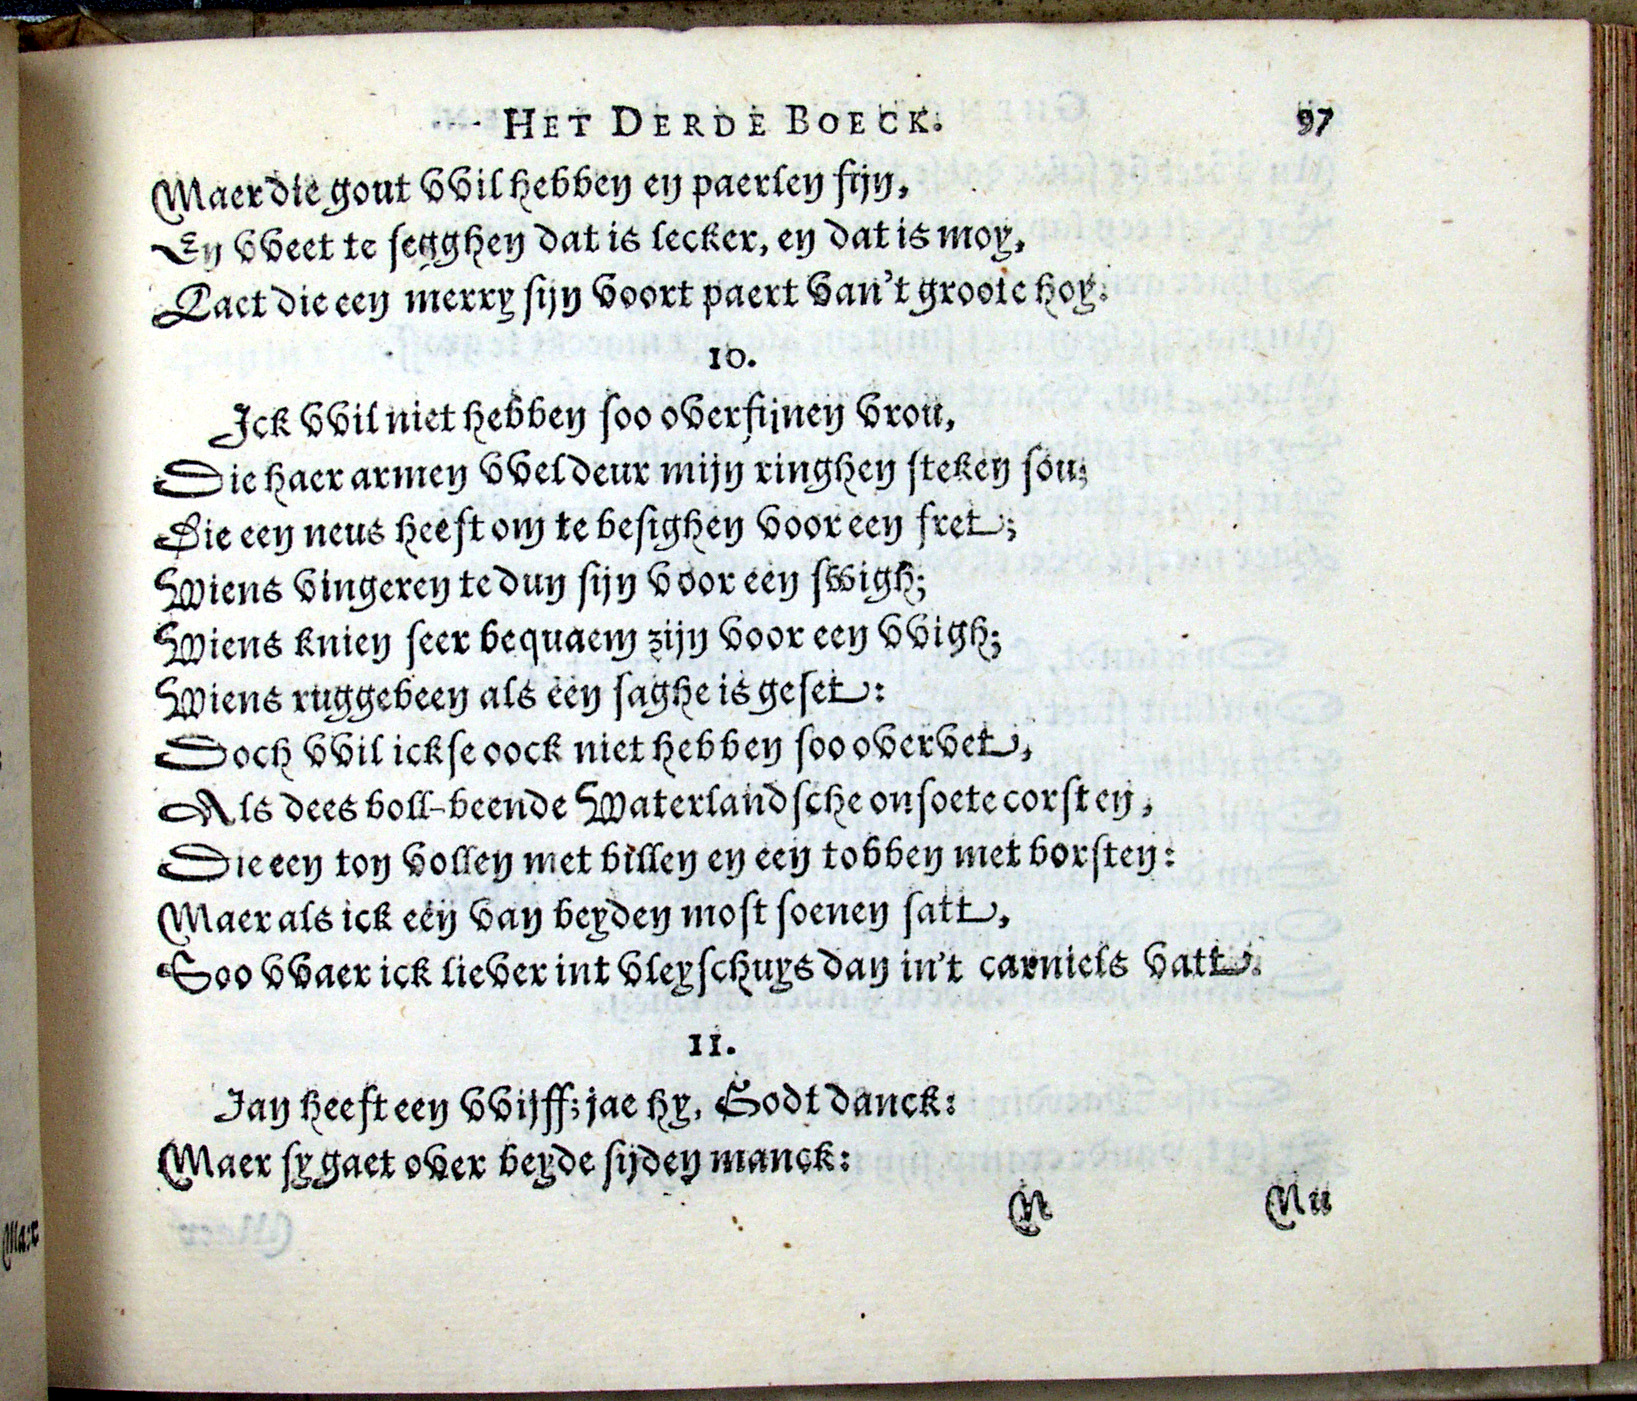 HET DERDE BOECK. 97
Maer die gout wil hebben en paerlen fijn,
En weet te segghen dat is lecker, en dat is moy,
Laet die een merry sijn voort paert van't groote hoy.
10.
Ick wil niet hebben soo overfijnen vrou,
Die haer armen wel deur mijn ringhen steken sou;
Die een neus heeft om te besighen voor een fret;
Wiens vingeren te dun sijn voor een swigh;
Wiens knien seer bequaem zijn voor een wigh;
Wiens ruggebeen als een saghe is geset:
Doch wil ickse oock niet hebben soo overvet,
Als dees boll-beende Waterlandsche onsoete corsten,
Die een ton vollen met billen en een tobben met borsten:
Maer als ick een van beyden most soenen satt,
Soo waer ick liever int vleyschuys dan in't carniels vatt.
11.
Jan heeft een wijff; jae hy, Godt danck:
Maer sy gaet over beyde sijden manck:
N Nu
Maer